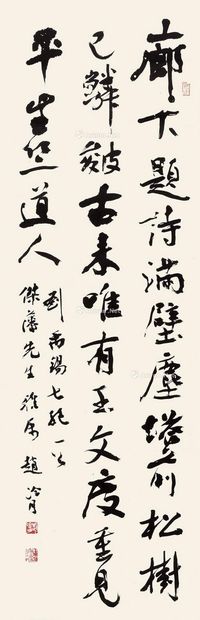 廊下題詩滿壁塵塔前松樹
已鱗皴古來唯有王文度重見
平生竺道人
劉禹錫七絕一首
傑藩先生雅屬 趙冷月